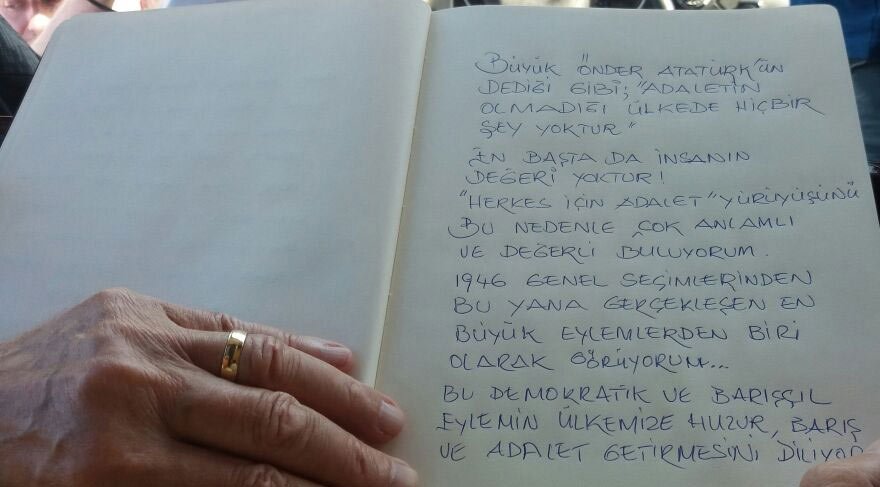 BÜYÜK ÖNDER ATATÜRK'ÜN
DEDİĞİ GİBİ; "ADALETİN
OLMADIĞI ÜLKEDE HİÇBİR
ŞEY YOKTUR"
EN BAŞTA DA İNSANIN
DEĞERİ YOKTUR!
"HERKES İÇİN ADALET" YÜRÜYÜŞÜNÜ
BU NEDENLE ÇOK ANLAMLI
VE DEĞERLİ BULUYORUM.
1946 GENEL SEÇİMLERİNDEN
BU YANA GERÇEKLEŞEN EN
BÜYÜK EYLEMLERDEN BİRİ
OLARAK GÖRÜYORUM...
BU DEMOKRATİK VE BARIŞÇIL
EYLEMİN ÜLKEMİZE HUZUR, BARIŞ
VE ADALET GETİRMESİNİ DİLİYOR